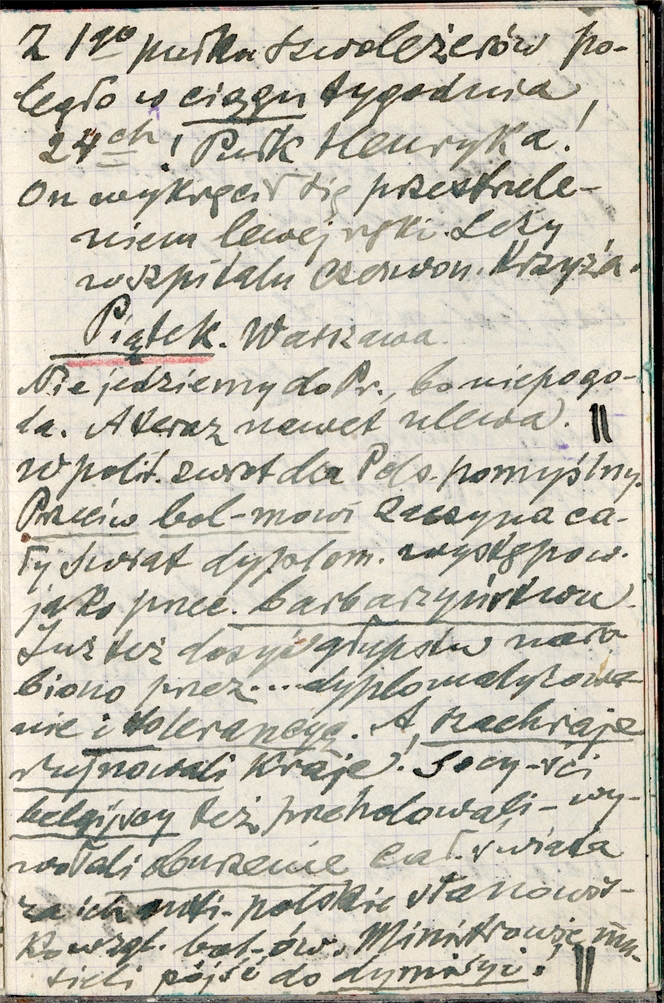 Z 1go pułku szwoleżerów po-
legło w ciągu tygodnia
24ch! Pułk Henryka!
On wykręcił się przestrzele-
niem lewej ręki. Leży
w szpitalu Czerwon. Krzyża.
Piątek. Warszawa.
Nie jedziemy do Pr., bo niepogo-
da. A teraz nawet ulewa.
W polit. zwrot dla Pols. pomyślny.
Przeciw bol-mowi zaczyna ca-
ły świat dyplom. występow.
jako przec. barbarzyństwu.
Już też dosyć głupstw naro
biono przez... dyplomatyzowa-
nie i tolerancyą. A szachraje
rujnowali kraje! Socy-ści
belgijscy też przeholowali - wy-
wołali oburzenie cał. świata
za ich anti-polskie stanowis-
ko wzgl. bol-ów. Ministrowie mu-
sieli pójść do dymisyi!